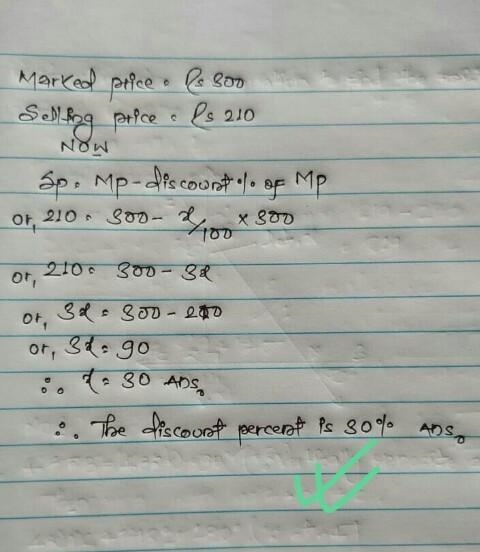 Marked price = Rs 300
Selling price = Rs 210
NOW
Sp = Mp - discount % of Mp
or, 210 = 300 - x/100 × 300
or, 210 = 300 - 3x
or, 3x = 300 - 210
or, 3x = 90
∴ x = 30 Ans.
∴ The discount percent is 30% Ans.